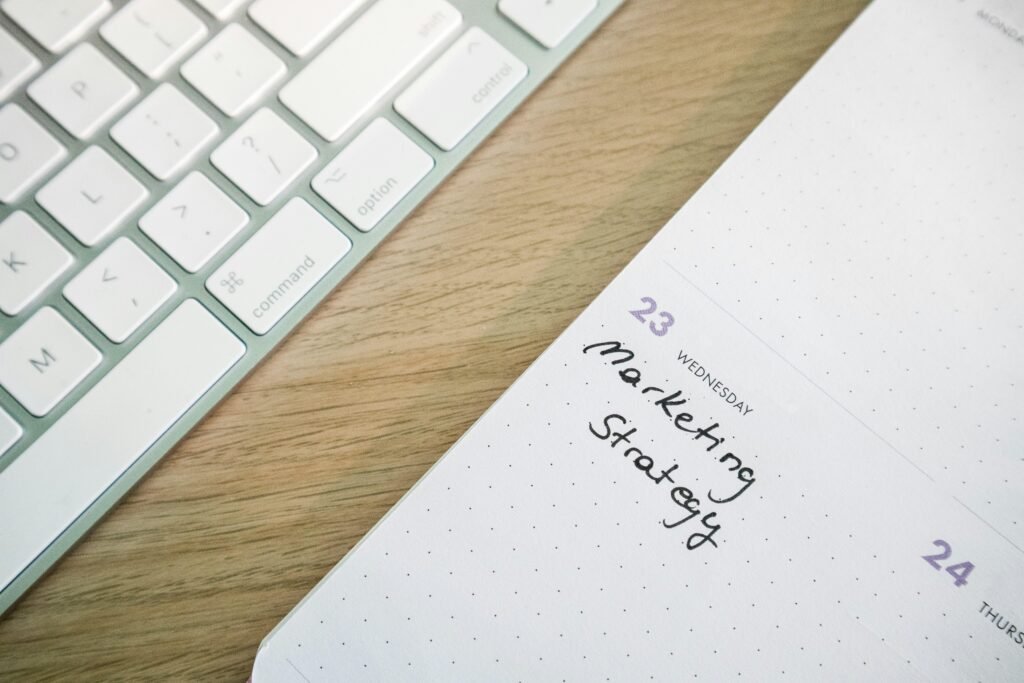 shift
control
P
" '
: ;
? /
option
O
L
> .
command
K
< ,
M
MONDAY
23
WEDNESDAY
Marketing
Strategy
24
THURS